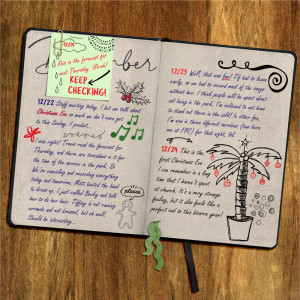 12/19
Rain is the forecast for
next Thursday. Waah!
KEEP
CHECKING!
December
12/22 Still waiting today. I
about talk about
Christmas Eve
to the Sunday
I was right! Travis read the forecast for
Thursday, and there are torrential in it for
the time of the service in the park. So
We're canceling and recording everything
today and tomorrow. Matt texted the band
to dress up. I just called Becky and told
her to do her hair. Tiffany is not running
errands and not dressed, but oh well.
Should be interesting.
please
12/23 Well, that was fun! Tiff had to leave
early, so we had to record most of the songs
without her. I think people will be upset about
not being in the park. I'm relieved to not have
to stand out there in the cold! &
I'm
in three different services (two here
and a FPC) for that night, lol.
12/24 This is the
first Christmas Eve
I can remember in a long
time that I haven't spent
at church. It's a very strange
feeling, but it also feels like a
perfect end to this bizarre year!